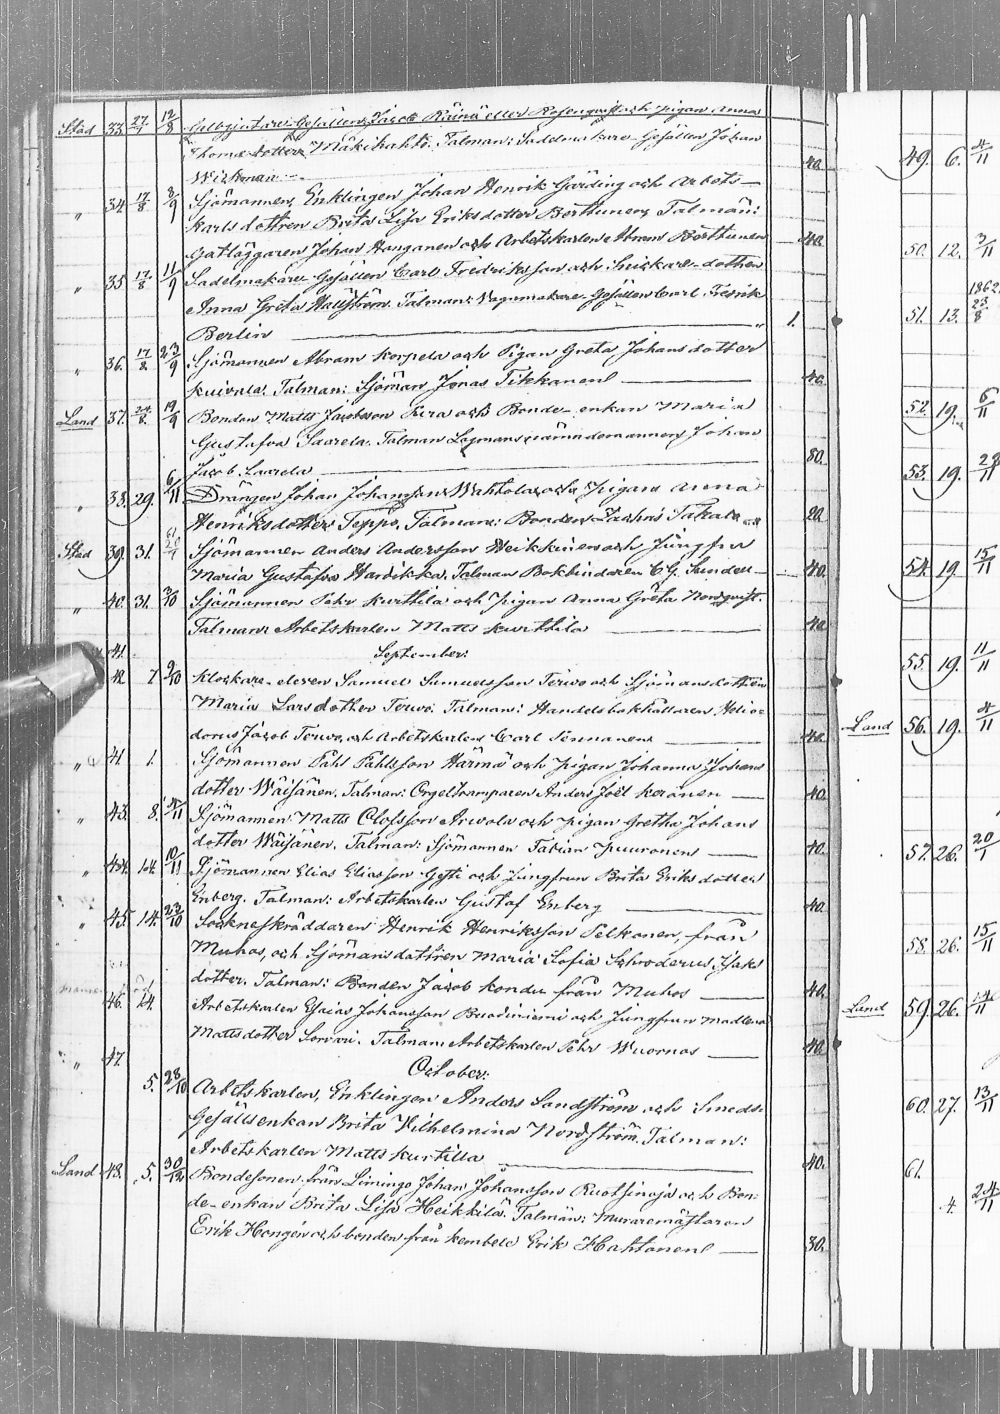 Stad 33. 27/7 12/8 Gelbgjutare-Gesällen Jacob Räinä eller Rosenqvist och pigan Anna
Thomædotter Mäkikahto. Talman: Sadelmakare-Gesällen Johan
Wickman 40.
" 34. 17/8 8/9 Sjömannen, Enklingen Johan Henrik Gärding och Arbets-
karls dottren Brita Lisa Eriksdotter Törthunen, Talmän:
Gatläggaren Johan Hanganen och Arbetskarlen Abram Törthunen 40.
" 35. 17/8 11/9 Sadelmakare-Gesällen Carl Fredriksson och Snickare-dottren
Anna Greta Hallström. Talman: Wagnmakare-Gesällen Carl Fredrik
Berlin " 1.
" 36. 17/8 23/9 Sjömannen Abram Korpela och Pigan Greta Johansdotter
Kuivala. Talman: Sjöman Jonas Tikkanen 40.
Land 37. 24/8 19/9 Bonden Matts Jacobsson och Bonde-enkan Maria
Gustafva Saarela. Talman Lagmansnämndemannen Johan
Jacob Saarela 80.
" 38. 29. 6/11 Drängen Johan Johansson Wahtola och Pigan Anna
Henriksdotter Seppä, Talman: Bonden Zachris Takalo 20.
Stad 39. 31. Sjömannen Anders Andersson Heikkinen och Jungfru
Maria Gustafva Hardikka. Talman Bokbindaren C G. Sundell 40.
" 40. 31. 3/10 Sjömannen Pehr Kurttila och Pigan Anna Greta Nordqvist.
Talman: Arbetskarlen Matts Kurttila 40.
41. September:
42. 7 9/10 Klockare-eleven Samuel Samuelsson Terwo och Sjömansdottren
Maria Larsdotter Terwo. Talman: Handelsbokhållaren Helio-
dorus Jacob Terwo, och Arbetskarlen Carl Tennanen 40.
" 41. 1. Sjömannen Påhl Påhlsson Härmä och pigan Johanna Johans
dotter Wäisänen. Talman: Orgeltramparen Anders Joël Keränen 40.
" 43. 8. 4/11 Sjömannen Matts Olofsson Arwola och Pigan Gretha Johans
dotter Wäisänen. Talman: Sjömannen Fabian Puuronen 40.
" 44. 14. 10/11 Sjömannen Elias Eliasson och Jungfrun Brita Eriksdotter
Enberg. Talman: Arbetskarlen Gustaf Enberg 40.
" 45. 14. 23/10 Sockneskräddaren Henrik Henriksson Pelkonen, från
Muhos, och Sjömansdottren Maria Sofia Schroderus, Isaks
dotter. Talman: Bonden Jacob Kondu från Muhos 40.
46. 14. Arbetskarlen Esaias Johansson och Jungfrun Madlena
Mattsdotter Sorvari. Talman: Arbetskarlen Pehr Wuornos 40.
" 47. October:
5. 28/10 Arbetskarlen, Enklingen Anders Sandström och Smeds-
Gesällsenkan Brita Wilhelmina Nordström. Talman:
Arbetskarlen Matts Kurtilla 40.
Land 48. 5. 30/12 Bondesonen från Limingo Johan Johansson Ruotsinoja och Bon-
de-enkan Brita Lisa Heikkilä. Talmän: Muraremästaren
Erik Hongén och bonden från Kembele Erik Hahtonen 30.
49. 6. 4/11
50. 12. 3/11
1862.
51. 13. 23/8
52. 19. 6/11
53. 19. 28/11
54. 19. 15/11
55. 19. 11/11
Land 56. 19. 4/11
57. 26. 20/1
58. 26. 15/11
Land 59. 26. 14/11
60. 27. 13/11
61.
4. 24/11